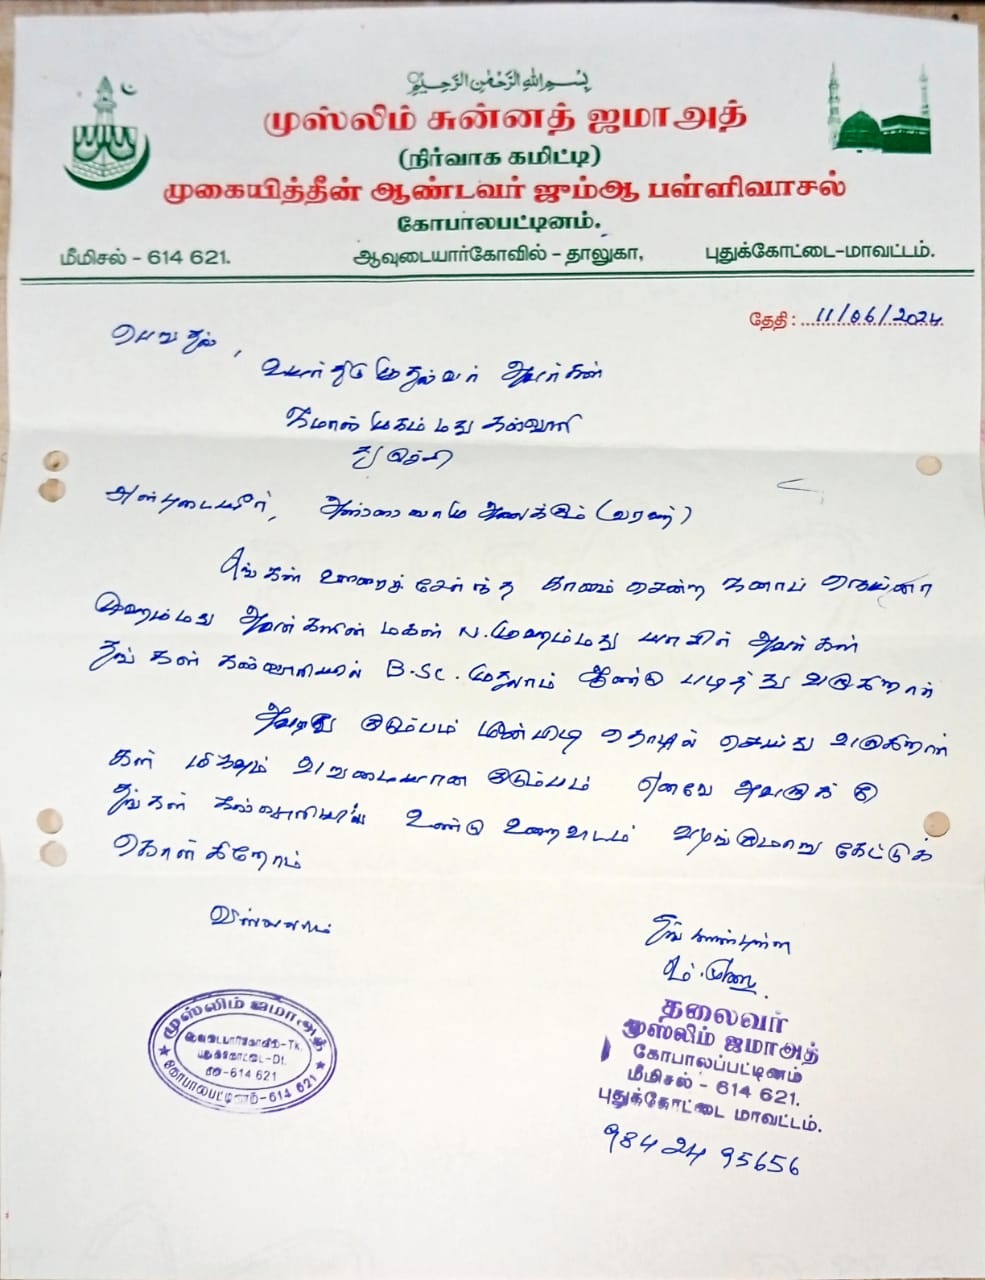 بِسْمِ اللهِ الرَّحْمٰنِ الرَّحِيْمِ
முஸ்லிம் சுன்னத் ஜமாஅத்
(நிர்வாக கமிட்டி)
முகையித்தீன் ஆண்டவர் ஜும்ஆ பள்ளிவாசல்
கோபாலபட்டினம்.
மீமிசல் - 614 621. ஆவுடையார்கோவில் - தாலுகா, புதுக்கோட்டை-மாவட்டம்.
தேதி : 11/06/2024
பெறுதல்,
உயர்திரு முதல்வர் அவர்கள்
ஜமால் முகம்மது கல்லூரி
திருச்சி
அன்புடையீர், அஸ்ஸலாமு அலைக்கும் (வரஹ்)
எங்கள் ஊரைச் சேர்ந்த காலம் சென்ற ஜனாப்
முஹம்மது அவர்களின் மகன் N. முஹம்மது யாசிர் அவர்கள்
தங்கள் கல்லூரியில் B.Sc. முதலாம் ஆண்டு படித்து வருகிறார்
அவரது குடும்பம் மீன்பிடி தொழில் செய்து வருகிறார்
கள் மிகவும் வறுமையான குடும்பம் எனவே அவருக்கு
தங்கள் கல்லூரியில் உண்டு உறைவிடம் வழங்குமாறு கேட்டுக்
கொள்கிறோம்
வஸ்ஸலாம்
இங்ஙனம்
தலைவர்
முஸ்லிம் ஜமாஅத்
கோபாலப்பட்டினம்
மீமிசல் - 614 621.
புதுக்கோட்டை மாவட்டம்.
98424 95656
முஸ்லிம் ஜமாஅத்
ஆவுடையார்கோவில்-Tk.
புதுக்கோட்டை-Dt.
614 621
கோபாலபட்டினம்-614 621